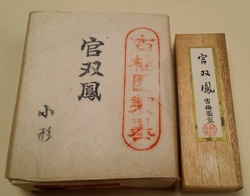 官双鳳
小形
古梅園製墨
官双鳳
古梅園製